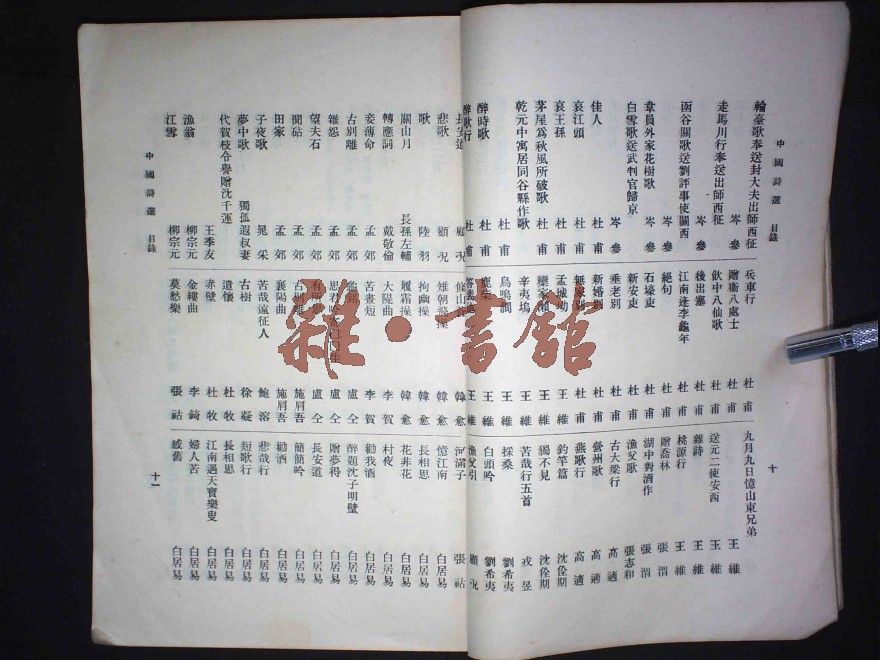 中國詩選 目錄 十
輪臺歌奉送封大夫出師西征 岑參
走馬川行奉送出師西征 岑參
函谷關歌送劉評事使關西 岑參
韋員外家花樹歌 岑參
白雪歌送武判官歸京 岑參
佳人 杜甫
哀江頭 杜甫
哀王孫 杜甫
茅屋爲秋風所破歌 杜甫
乾元中寓居同谷縣作歌 杜甫
醉時歌 杜甫
醉歌行 杜甫
兵車行 杜甫
贈衞八處士 杜甫
飲中八仙歌 杜甫
後出塞 杜甫
江南逢李龜年 杜甫
絕句 杜甫
石壕吏 杜甫
新安吏 杜甫
垂老別 杜甫
新婚別 杜甫
無家別 杜甫
孟城坳 王維
欒家瀨 王維
辛夷塢 王維
鳥鳴澗 王維
鹿柴 王維
王維
九月九日憶山東兄弟 王維
送元二使安西 王維
雜詩 王維
桃源行 王維
贈喬林 張渭
湖中對酒作 張渭
漁父歌 張志和
古大梁行 高適
營州歌 高適
燕歌行 高適
釣竿篇 沈佺期
獨不見 沈佺期
苦哉行五首 戎昱
採桑 劉希夷
白頭吟 劉希夷
漁父引 顧况
長安道 顧况
悲歌 顧况
歌 陸羽
關山月 長孫左輔
轉應詞 戴敬倫
妾薄命 孟郊
古別離 孟郊
雜怨 孟郊
望夫石 孟郊
聞砧 孟郊
田家 孟郊
子夜歌 晁采
夢中歌 獨孤遐叔妻
代賀枝令譽贈沈千運 王季友
漁翁 柳宗元
江雪 柳宗元
條山蒼 韓愈
雉朝飛操 韓愈
拘幽操 韓愈
履霜操 韓愈
大隄曲 李賀
苦晝短 李賀
銘 盧仝
盧仝
有所思 盧仝
古別離 施肩吾
襄陽曲 施肩吾
苦哉遠征人 鮑溶
古樹 徐凝
遣懷 杜牧
赤壁 杜牧
金縷曲 李錡
莫愁樂 張祜
河滿子 張祜
憶江南 白居易
長相思 白居易
花非花 白居易
村夜 白居易
勸我酒 白居易
醉題沈子明壁 白居易
贈夢得 白居易
長安道 白居易
簡簡吟 白居易
勸酒 白居易
悲哉行 白居易
短歌行 白居易
長相思 白居易
江南遇天寶樂叟 白居易
婦人苦 白居易
感舊 白居易
中國詩選 目錄 十一
雜·書館